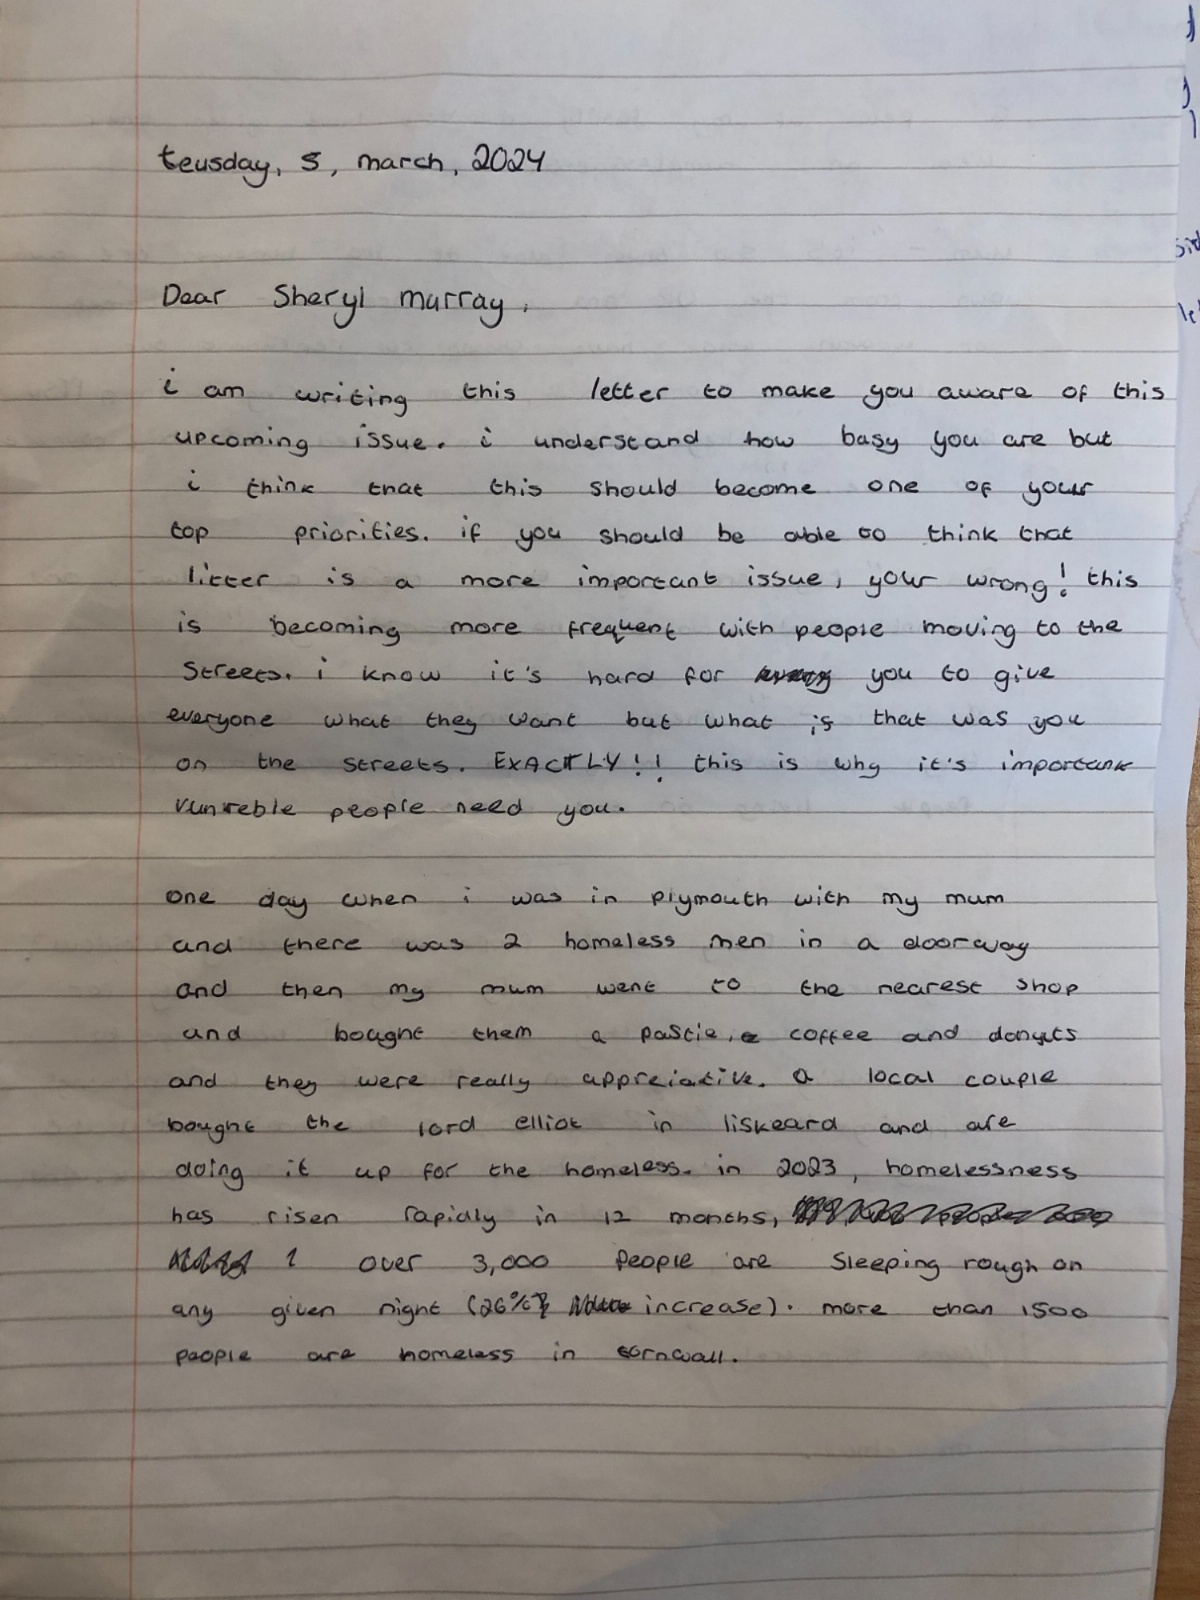 teusday, 5, march, 2024
Dear Sheryl murray,
i am writing this letter to make you aware of this
upcoming issue. i understand how basy you are but
i think that this should become one of your
top priorities. if you should be able to think that
litter is a more important issue, your wrong! this
is becoming more frequent with people moving to the
Streets. i know it's hard for you to give
everyone what they want but what is that was you
on the streets. EXACTLY!! this is why it's important
vunreble people need you.
one day when i was in plymouth with my mum
and there was 2 homeless men in a doorway
and then my mum went to the nearest shop
and bought them a pastie, a coffee and donuts
and they were really appreiative. a local couple
bought the lord elliot in liskeard and are
doing it up for the homeless. in 2023, homelessness
has risen rapidly in 12 months,
over 3,000 people are sleeping rough on
any given night (26% increase). more than 1500
people are homeless in cornwall.